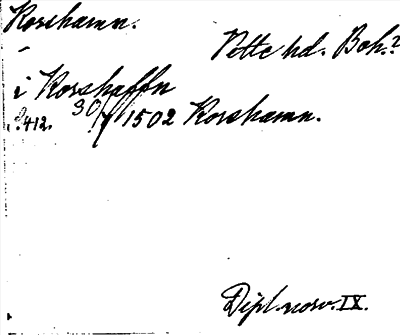 Korshamn.
Vette hd. Boh.?
i Korshaffn
s. 412. 30/7 1502 Korshamn.
Dipl. norv. IX.